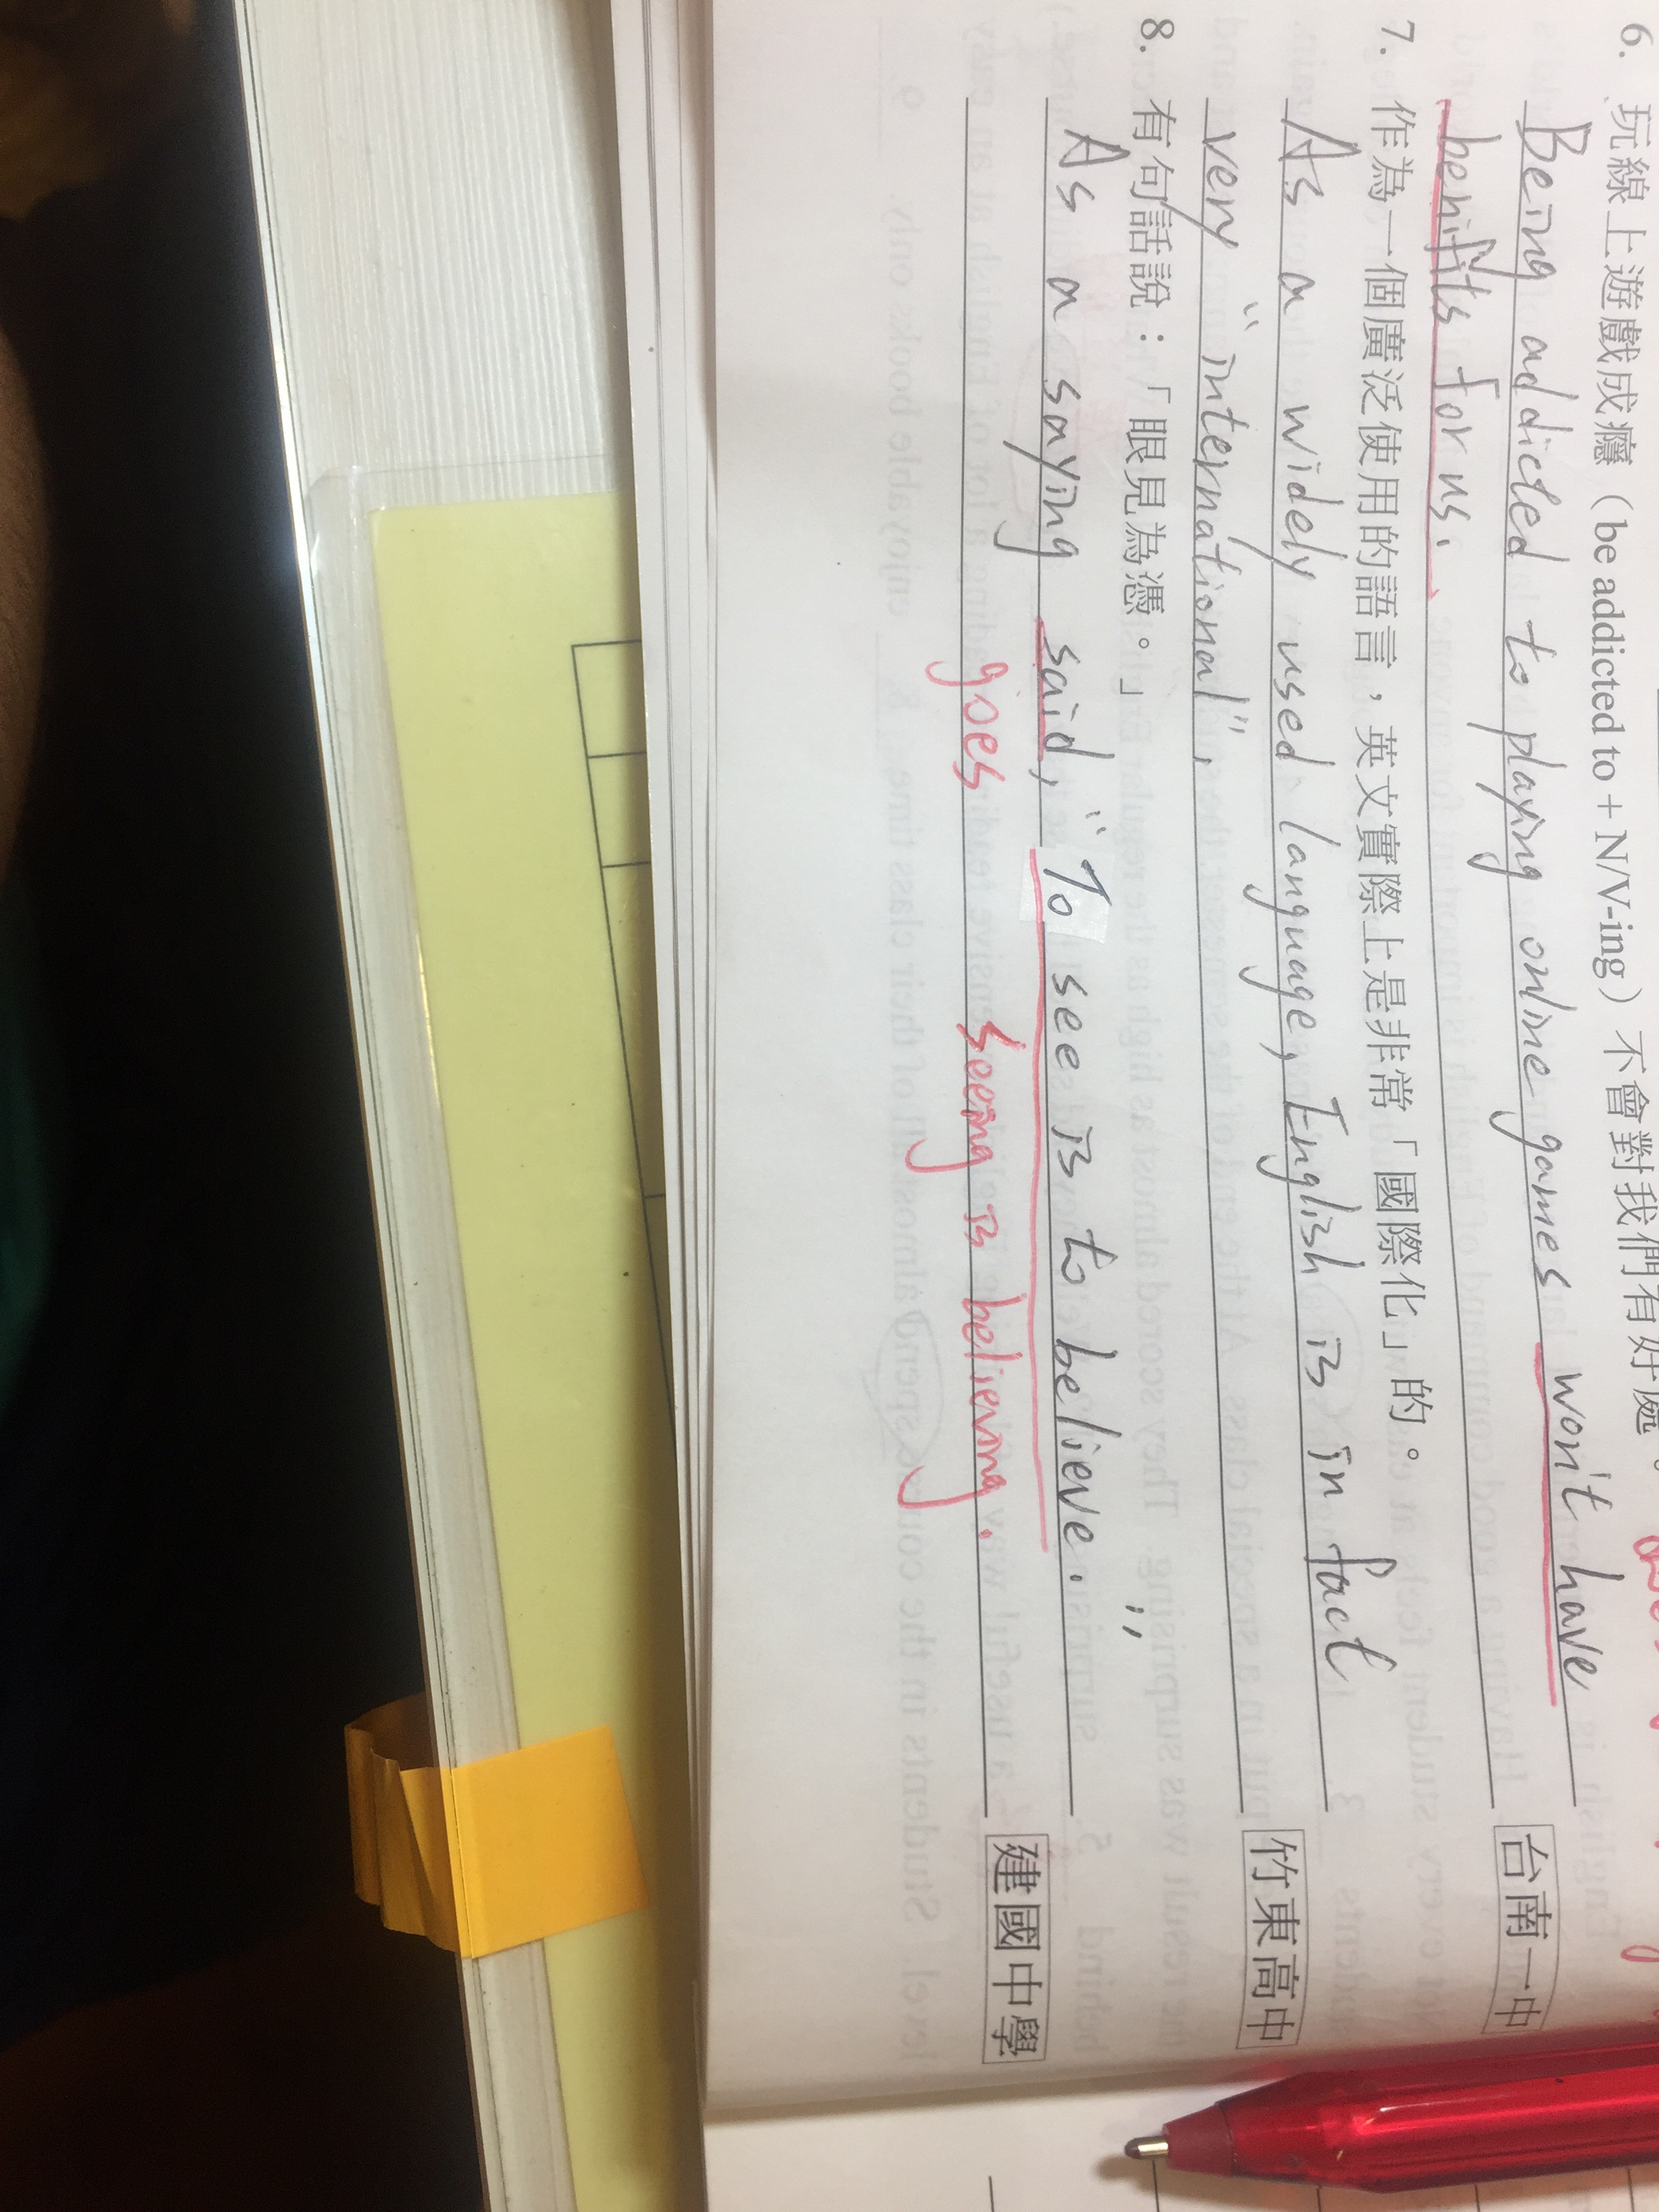 6. 玩線上遊戲成癮（be addicted to + N/V-ing）不會對我們有好處。
Being addicted to playing online games won't have
benifits for us.
台南一中
7. 作為一個廣泛使用的語言，英文實際上是非常「國際化」的。
As a widely used language, English is in fact
very "international".
竹東高中
8. 有句話說：「眼見為憑。」
As a saying said, "To see is to believe."
goes seeing is believing.
建國中學